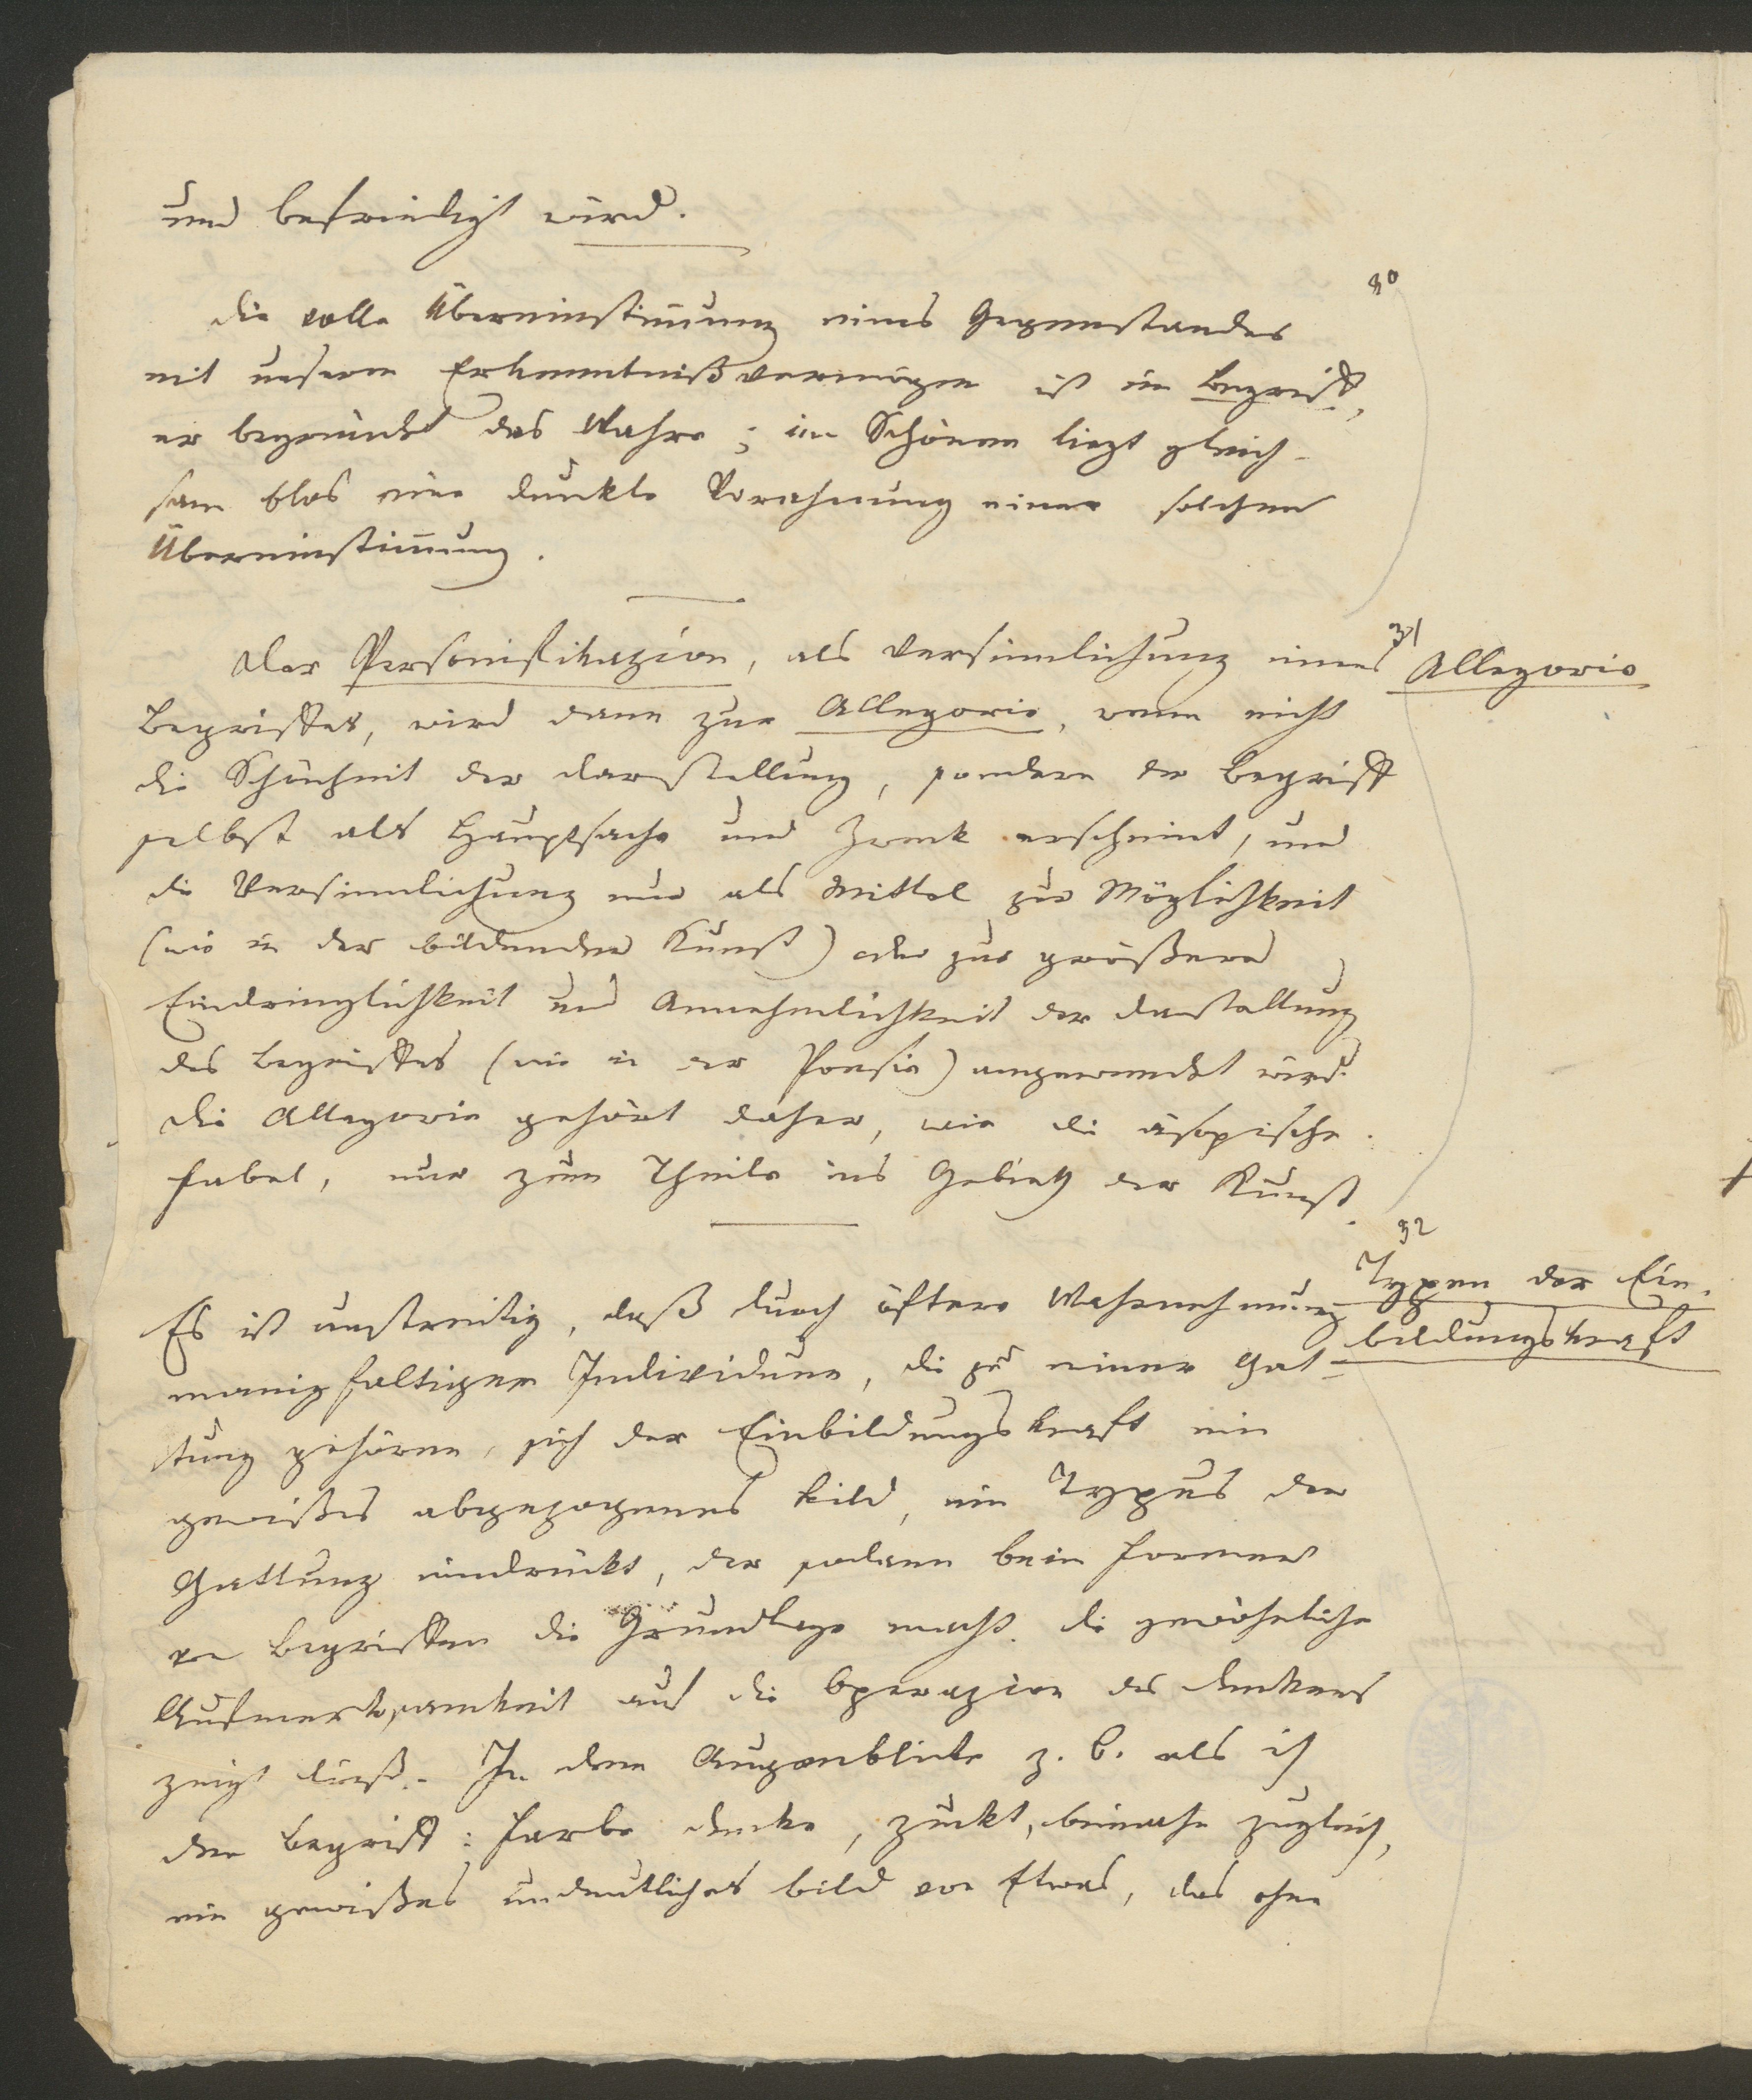 und befriedigt wird.
30
Die volle Übereinstimmung eines Gegenstandes
mit unserm Erkenntnißvermögen ist im Begriff,
er begründet das Wahre; im Schönen liegt gleich-
sam blos eine dunkle Vorahnung einer solchen
Übereinstimmung.
31
Der Personifikazion, als Versinnlichung eines
Allegorie
Begriffes, wird dann zur Allegorie, wenn nicht
die Schönheit der Darstellung, sondern der Begriff
selbst als Hauptsache und Zweck erscheint, und
die Versinnlichung nur als Mittel zur Möglichkeit
(wie in der bildenden Kunst) oder zur größern
Eindringlichkeit und Annehmlichkeit der Darstellung
des Begriffes (wie in der Poesie) angewendet wird.
Die Allegorie gehört daher, wie die äsopische
Fabel, nur zum Theile ins Gebieth der Kunst.
32
Typen der Ein-
bildungskraft
Es ist unstreitig, daß durch öftere Wahrnehmung
manigfaltiger Individuen, die zu einer Gat-
tung gehören, sich der Einbildungskraft ein
gewißes abgezogenes Bild, ein Typus der
Gattung eindrückt, der sodann beim Formen
von Begriffen die Grundlage macht. Die gewöhnliche
Aufmerksamkeit auf die Operazion des Denkens
zeigt dieß. In dem Augenblicke z. B. als ich
den Begriff: Farbe denke, zuckt, beinahe zugleich,
ein gewißes undeutliches Bild von Etwas, das ohne